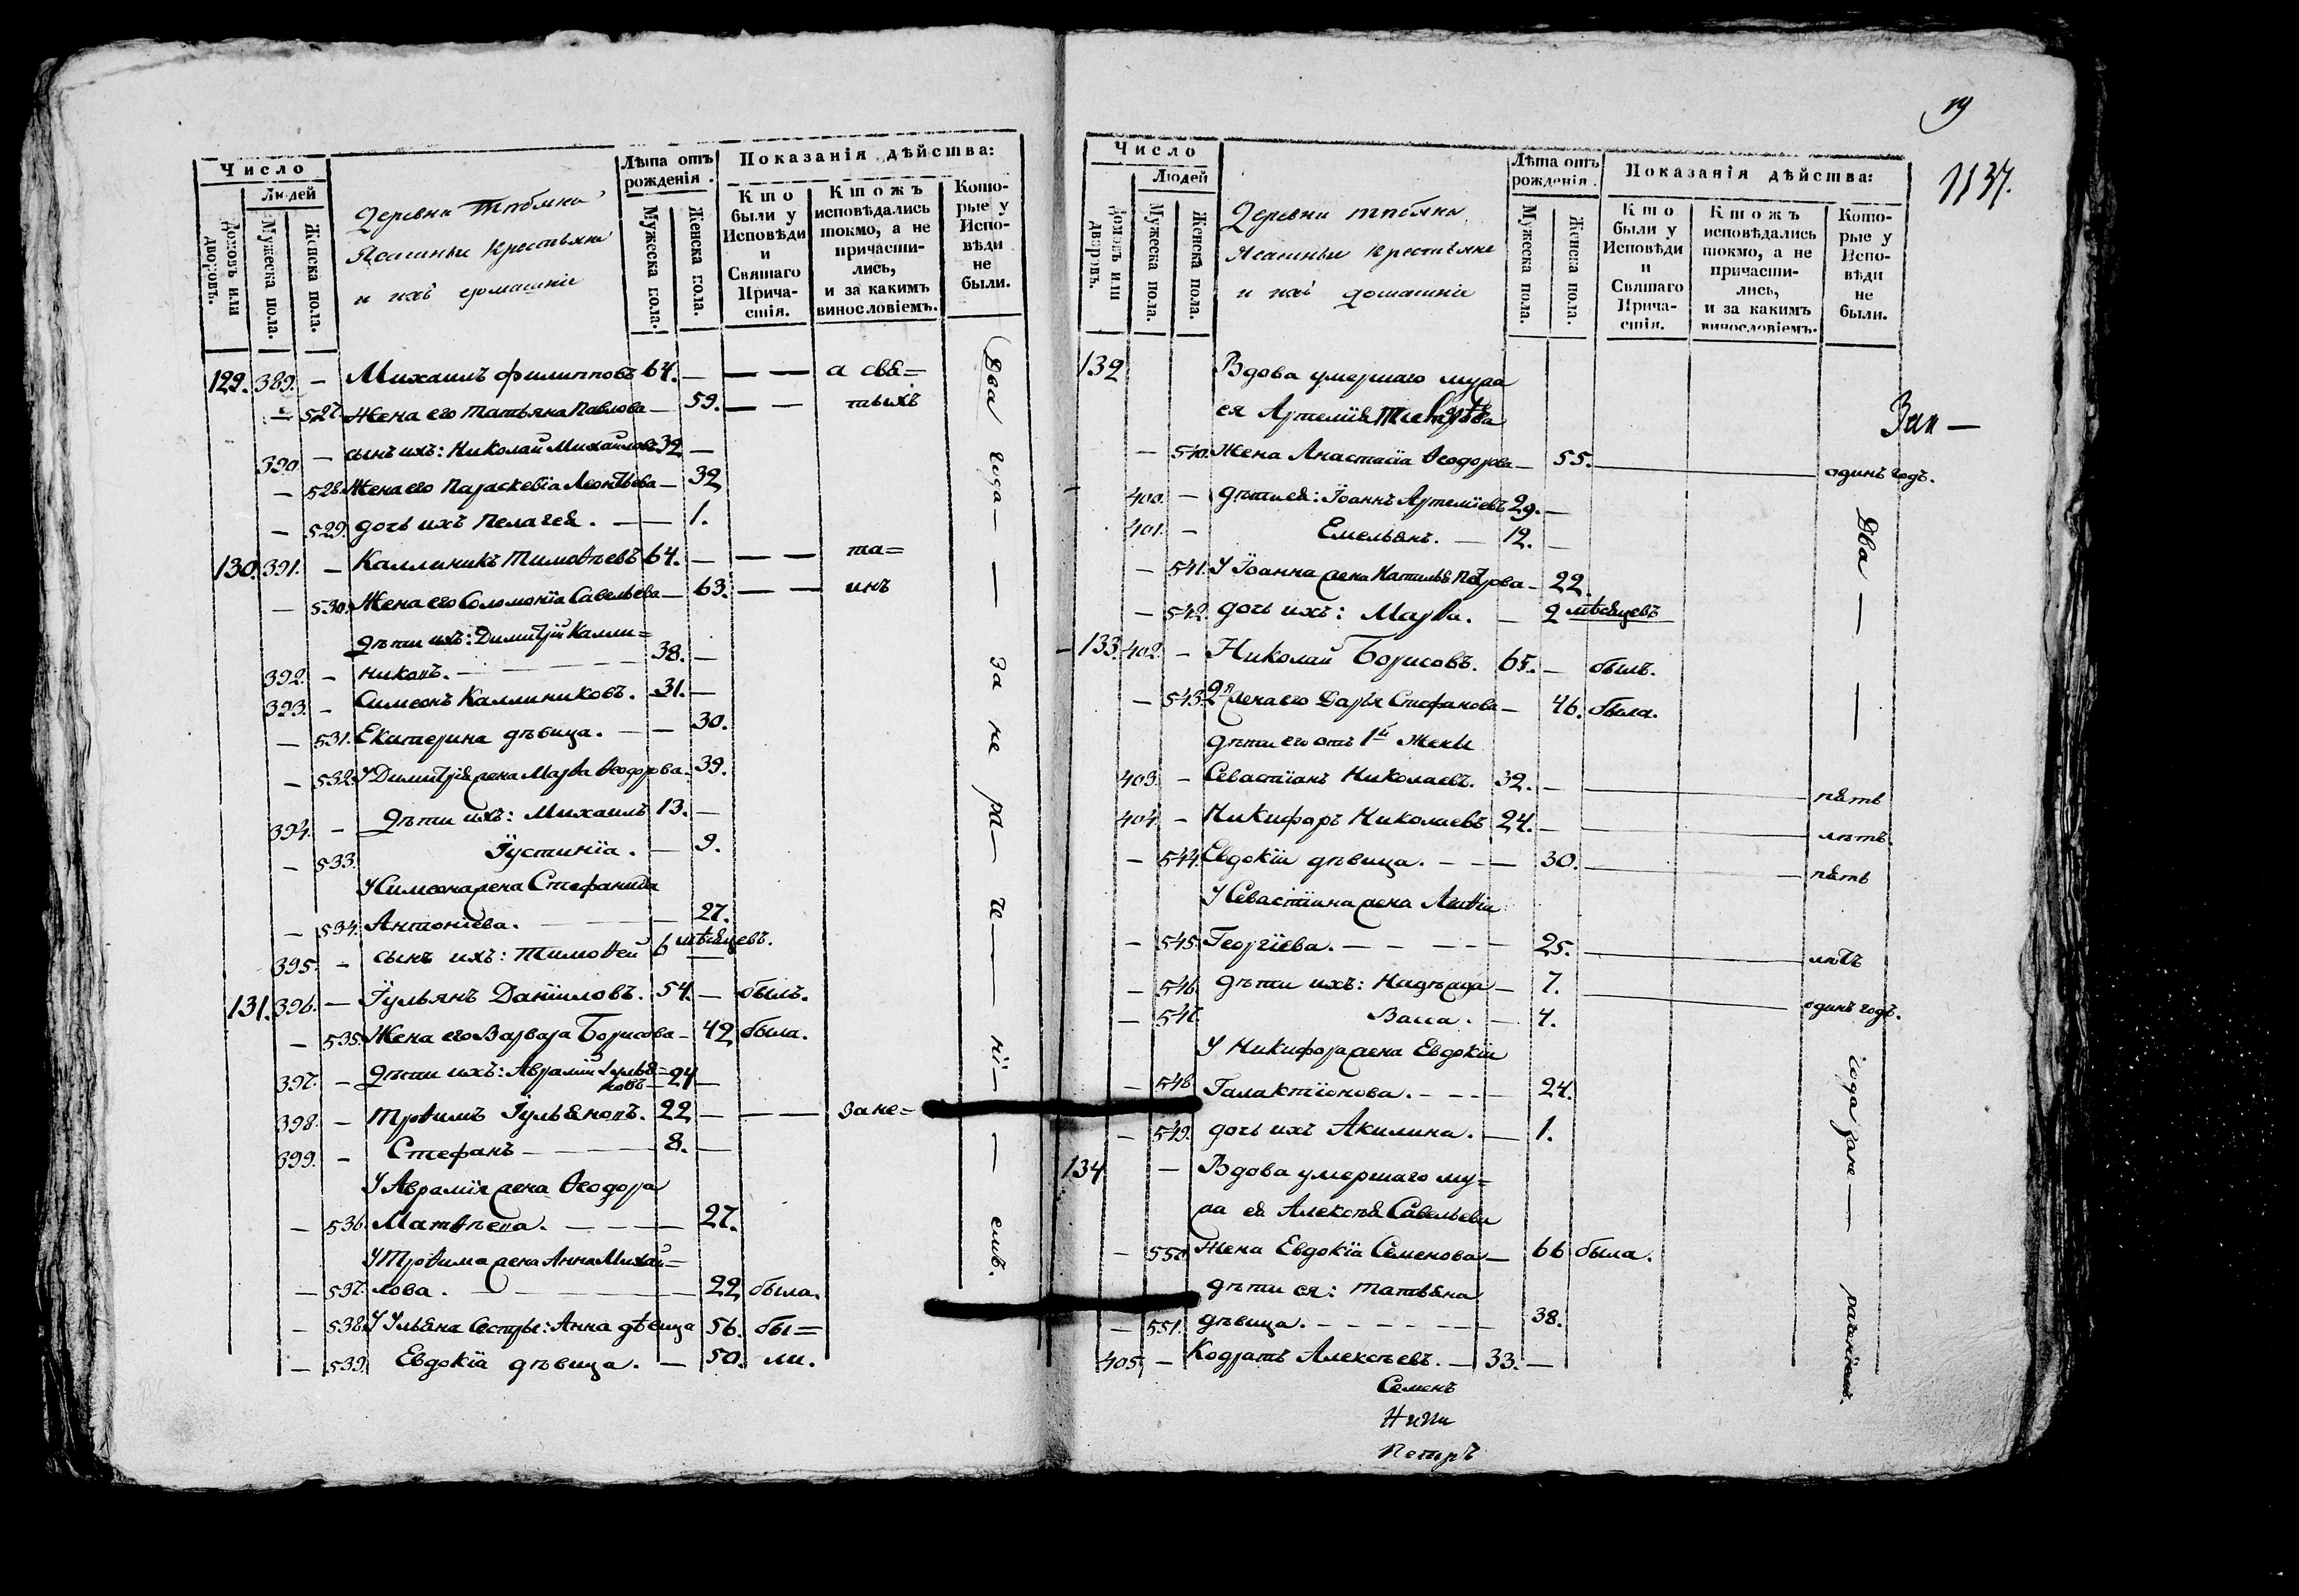 Число
Людей
Домовъ или дворовъ.
Мужеска пола.
Женска пола.
Деревни
Ясашные крестьяне
и ихъ домашніе
Лѣта отъ рожденія.
Мужеска пола.
Женска пола.
Показанія дѣйства:
Кто были у Исповѣди и Святаго Причастія.
Ктожъ исповѣдались токмо, а не причастились, и за какимъ винословіемъ.
Которые у Исповѣди не были.
129. 389. — Михаилъ Филипповъ 64. — — — а свя=
— 527. Жена его Татьяна Павлова — 59. — — тыхъ
390. — сынъ ихъ: Николай Михайловъ 32 —
— 528. Жена его Параскевія Леонтьева — 32
— 529. дочь ихъ Пелагея. — — 1.
130. 391. — Каллиникъ Тимоѳѣевъ 64. — — — та=
— 530. Жена его Соломонія Савельева — 63. — — инъ
Дѣти ихъ: Димитрій Калли=
392. — никовъ. — 38. —
393. — Симеонъ Каллиниковъ. 31. —
— 531. Екатерина дѣвица. — — 30.
— 532. У Димитрія жена Марѳа Ѳеодорова — 39.
394. — Дѣти ихъ: Михаилъ 13. —
— 533. Іустинія. — 9.
У Симеона жена Стефанида
— 534. Антоніева. — 27.
395. — сынъ ихъ: Тимоѳей 6 мѣсяцевъ.
131. 396. — Іульянъ Даніиловъ. 54. — былъ.
— 535. Жена его Варвара Борисова — 42 была.
397. — Дѣти ихъ: Аврамій Іулья=
новъ — 24 —
398. — Трѳимъ Іульяновъ. 22 — — — зане=
399. — Стефанъ — 8. —
У Аврамія жена Ѳеодора
— 536. Матѳѣева. — — 27.
У Трѳима жена Анна Михай=
— 537. лова. — 22 была.
— 538. У Ульяна Сестры: Анна дѣвица 56. бы=
— 539. Евдокія дѣвица. — 50. ли.
Два года — — за не ра— че— — ні— — емъ.
19
1137.
Число
Людей
Домовъ или дворовъ.
Мужеска пола.
Женска пола.
Деревни
Ясашные крестьяне
и ихъ домашніе
Лѣта отъ рожденія.
Мужеска пола.
Женска пола.
Показанія дѣйства:
Кто были у Исповѣди и Святаго Причастія.
Ктожъ исповѣдались токмо, а не причастились, и за какимъ винословіемъ.
Которые у Исповѣди не были.
132 Вдова умершаго мужа
ея Артемія
— 540. Жена Анастасія Ѳеодорова — 55. — одинъ годъ.
400. — дѣти ея: Іоаннъ Артеміевъ 29. —
401. — Емельянъ. — 12. —
— 541. У Іоанна жена Наталья Петрова — 22.
— 542. дочь ихъ: Марѳа. — 2 мѣсяцевъ
133. 402. — Николай Борисовъ. 65. — былъ.
— 543. 2я жена его Дарья Стефанова — 46. была.
дѣти его отъ 1й Жены
403. — Севастіанъ Николаевъ. 32. — — пять
404. — Никифоръ Николаевъ 24. — — лѣтъ.
— 544. Евдокія дѣвица. — — 30. — пять
У Севастіана жена Агаѳія
— 545. Георгіева. — — — 25. — лѣтъ
— 546. дѣти ихъ: Надежда — 7. — одинъ годъ.
— 547. Васса. — 4.
У Никифора жена Евдокія
— 548. Галактіонова. — — — 24.
— 549. дочь ихъ Акилина. — 1.
134 — Вдова умершаго му=
жа ея Алексѣя Савельева
— 550. Жена Евдокія Семенова — 66 была.
дѣти ея: Татьяна
— 551. дѣвица. — — — 38.
405. — Кодратъ Алексѣевъ. — 33. —
Два — — года зане — раченіемъ.
Семенъ
Петръ